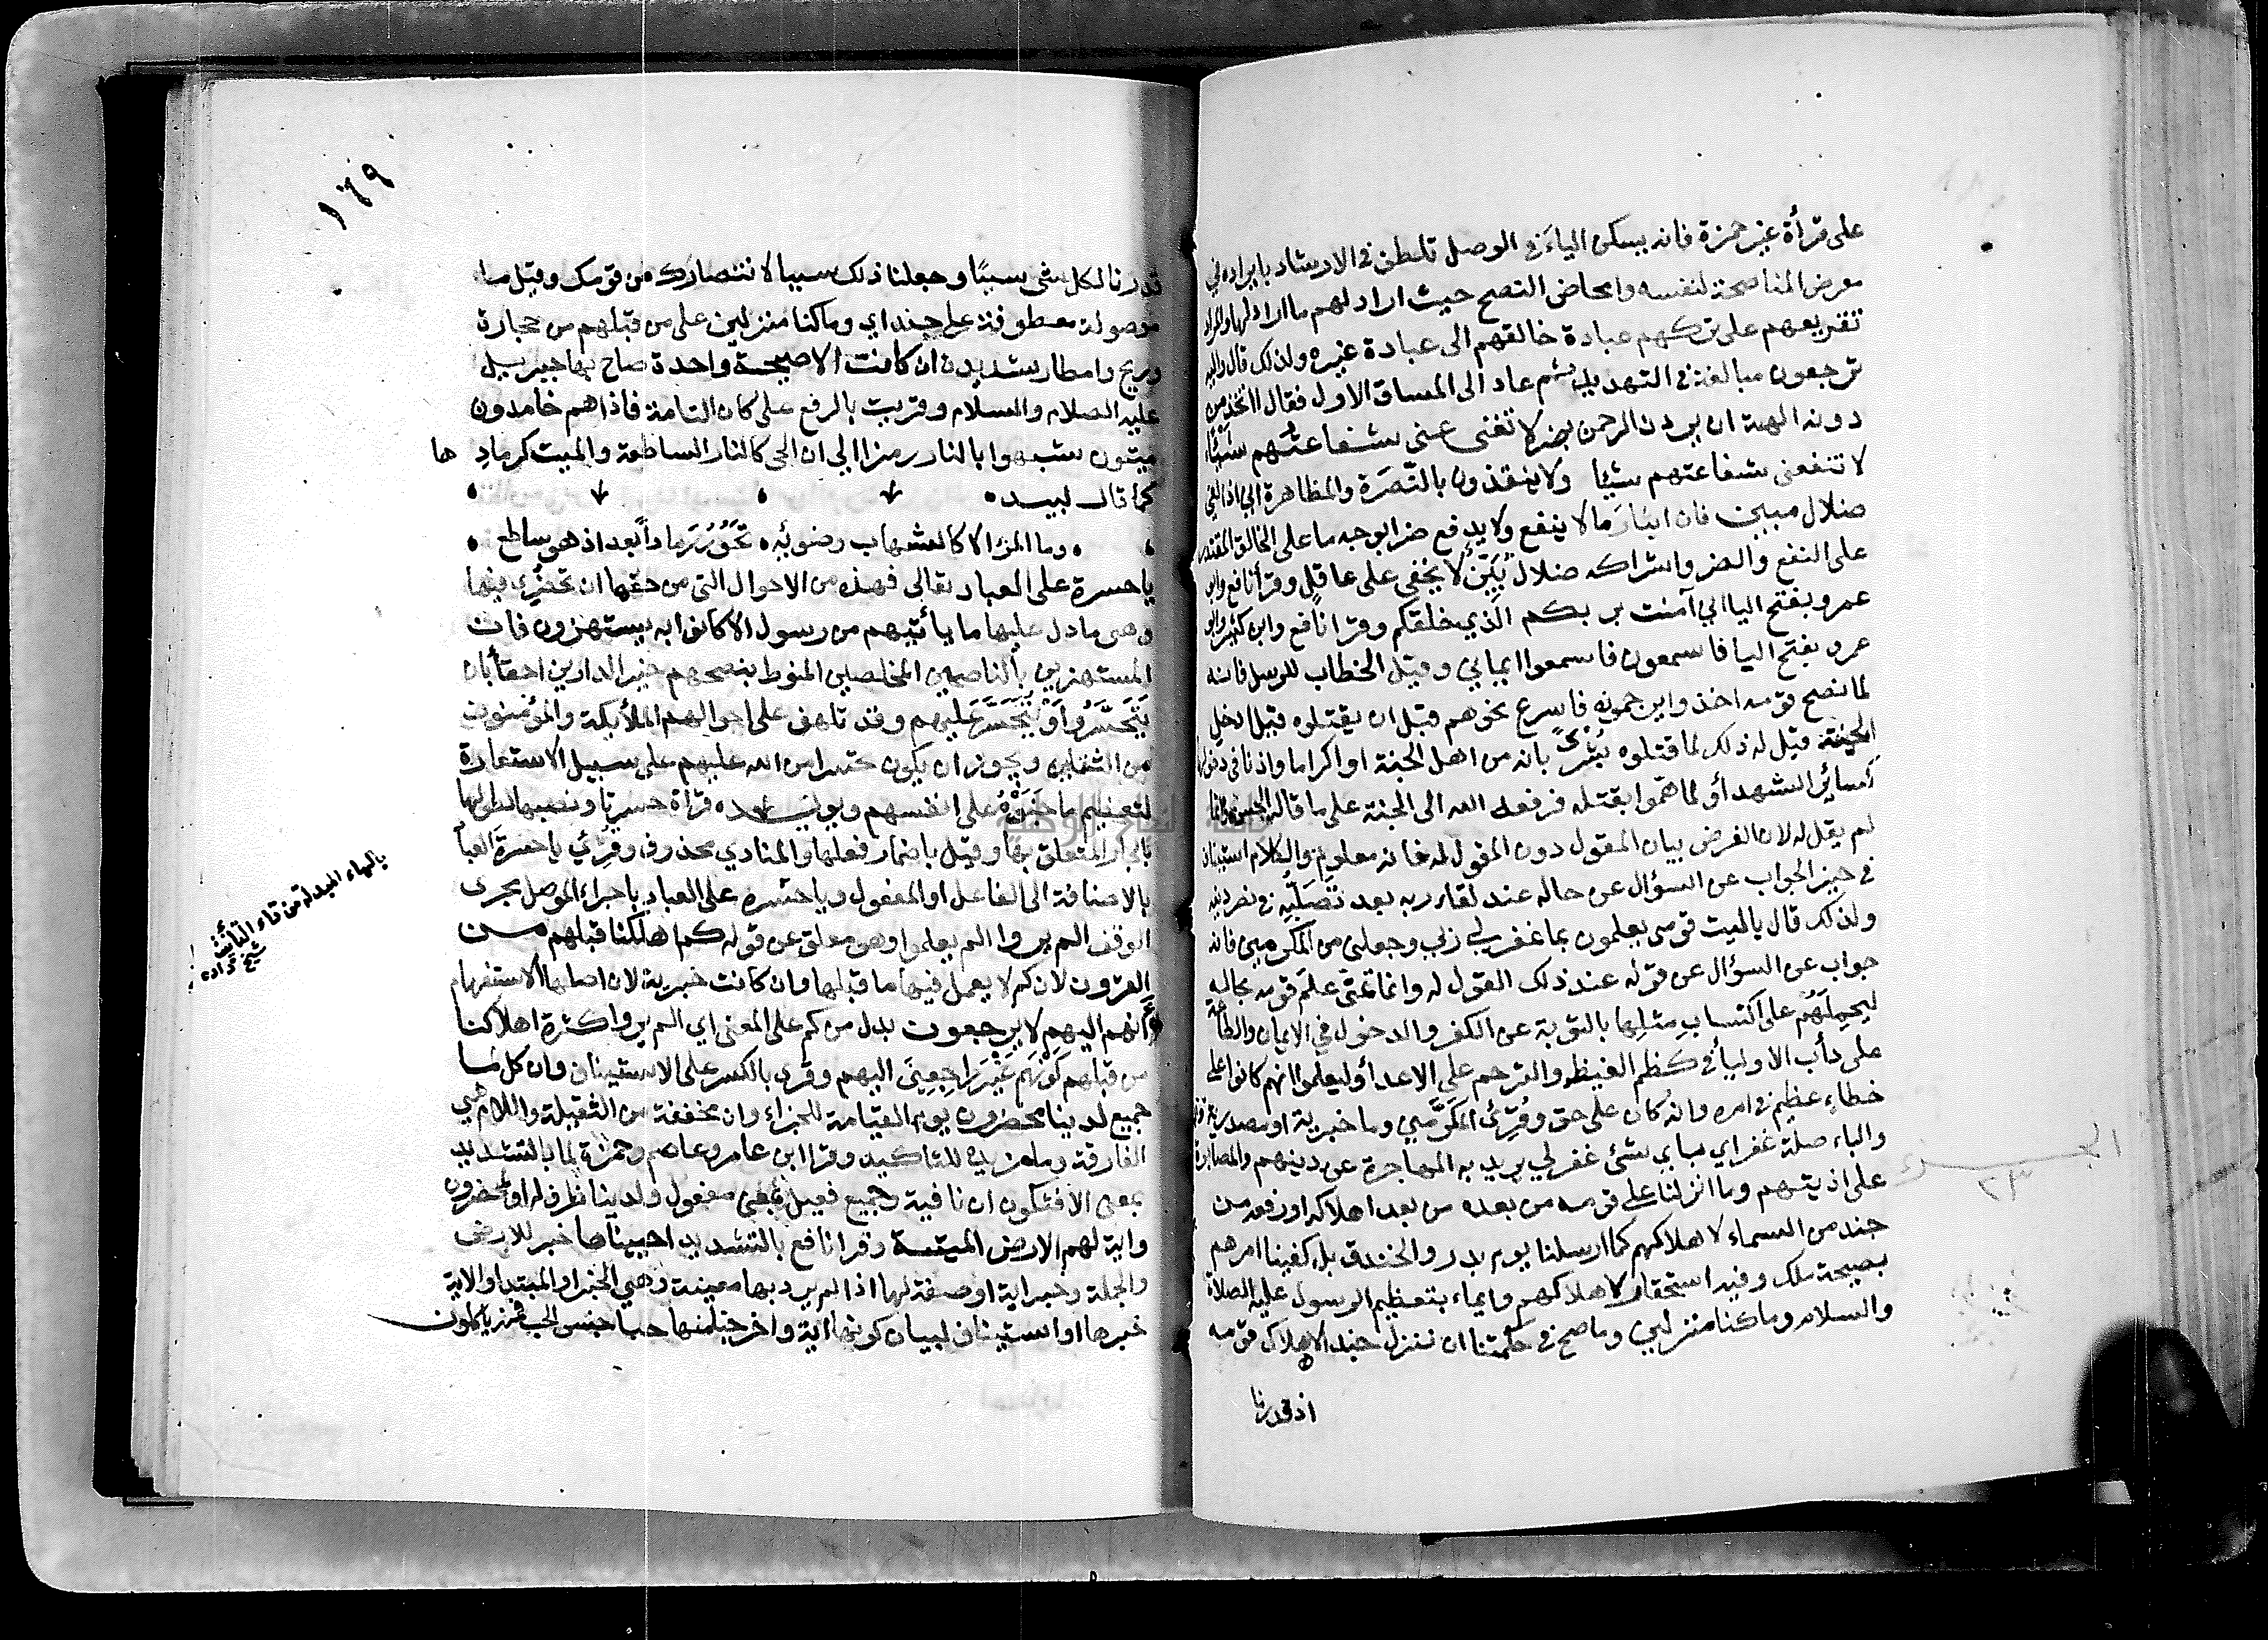 على قرأة غير حمزة فانه يسكن الياء في الوصل تلطف في الارشاد بايراده في
معرض المناصحة لنفسه وامحاض النصح حيث اراد لهم ما اراد لها والمراد
تقريعهم على تركهم عبادة خالقهم الى عبادة غيره ولذلك قال واليه
ترجعون مبالغة في التهديد ثم عاد الى المساق الاول فقال أاتخذ من
دونه الهة ان يردن الرحمن بضر لا تغنى عنى شفاعتهم شيئا
لا تنفعنى شفاعتهم شيئا ولا ينقذون بالنصرة والمظاهرة اني اذا لفي
ضلال مبين فان ايثار ما لا ينفع ولا يدفع ضرا بوجه ما على الخالق المقتدر
على النفع والضر واشراكه ضلال بين لا يخفى على عاقل وقرأ نافع وابو
عمرو بفتح اليا اني آمنت بربكم الذي خلقكم وقرا نافع وابن كثير وابو
عمرو بفتح اليا فاسمعون فاسمعوا ايماني وقيل الخطاب للرسل فانه
لما نصح قومه اخذوا يرجمونه فاسرع نحوهم قبل ان يقتلوه قيل ادخل
الجنة قيل له ذلك لما قتلوه بشرى بانه من اهل الجنة او اكراما واذنا في دخولها
كسائر الشهدأ او لما هموا بقتله فرفعه الله الى الجنة على ما قاله الحسن وانما
لم يقل له لان الغرض بيان المقول دون المقول له فانه معلوم والكلام استيناف
في حيز الجواب عن السؤال عن حاله عند لقاء ربه بعد تصلبه في نصر دينه
ولذلك قال ياليت قومى يعلمون بما غفر لي ربي وجعلنى من المكرمين فانه
جواب عن السؤال عن قوله عند ذلك القول له وانما تمنى علم قومه بحاله
ليحملهم على اكتساب مثلها بالتوبة عن الكفر والدخول في الايمان والطاعة
على دأب الاوليأ في كظم الغيظ والترحم على الاعدأ او ليعلموا انهم كانوا على
خطاء عظيم في امره وانه كان على حق وقرئ المكرمين وما خبرية او مصدرية
والباء صلة غفر اي باي شئ غفر لي يريد به المهاجرة عن دينهم والمصابرة
على اذيتهم وما انزلنا على قومه من بعده من بعد اهلاكه او رفعه من
جند من السماء لاهلاكهم كما ارسلنا يوم بدر والخندق بل كفينا امرهم
بصيحة ملك وفيه استحقار لاهلاكهم وايماء بتعظيم الرسول عليه الصلاة
والسلام وما كنا منزلين وما صح في حكمتنا ان ننزل جندا لاهلاك قومه
اذ قدرنا
١٦٩
قدرنا لكل شى سببا وجعلنا ذلك سببا لانتصارك من قومك وقيل ما
موصولة معطوفة على جند اي وما كنا منزلين على من قبلهم من حجارة
وريح وامطار شديدة ان كانت الا صيحة واحدة صاح بها جبريل
عليه الصلام والسلام وقريت بالرفع على كان التامة فاذا هم خامدون
ميتون شبهوا بالنار رمزا الي ان الحى كالنار الساطعة والميت كرمادها
كما قال لبيد
وما المرؤ الا كالشهاب وضوئه تحور رمادا بعد اذ هو ساطع
يا حسرة على العباد تعالى فهذه من الاحوال التى من حقها ان تحضرى فيها
وهى ما دل عليها ما يأتيهم من رسول الا كانوا به يستهزون فان
المستهزين بالناصحين المخلصين المنوط بنصحهم خير الدارين احقأ بان
يتحسروا او يتحسر عليهم وقد تلهف على احوالهم الملائكة والمؤمنون
من الثقلين ويجوز ان يكون تحسرا من الله عليهم على سبيل الاستعارة
لتعظيم ما جنوه على انفسهم ويؤيده قرأة حسرتا ونصبها لطولها
بالجار المتعلق بها وقيل باضمار فعلها والمنادي محذوف وقرئ يا حسرة العباد
بالاضافة الى الفاعل او المفعول ويا حسره على العباد باجراء الوصل مجرى
الوقف الم يروا الم يعلموا وهو معلق عن قوله كم اهلكنا قبلهم من
القرون لان كم لا يعمل فيها ما قبلها وان كانت خبرية لان اصلها الاستفهام
أنهم اليهم لا يرجعون بدل من كم على المعنى اي الم يروا كثرة اهلاكنا
من قبلهم كونهم غير راجعين اليهم وقرى بالكسر على الاستيناف وان كل لما
جميع لدينا محضرون يوم القيامة للجزاء وان مخففة من الثقيلة واللام هي
الفارقة وما مزيدة للتاكيد وقرا ابن عامر وعاصم وحمزة لما بالتشديد
بمعنى الا فتكون ان نافية وجميع فعيل بمعنى مفعول ولدينا ظرف له او لمحضرون
واية لهم الارض الميتة وقرا نافع بالتشديد احييناها خبر للارض
والجملة خبر اية او صفة لها اذ لم يرد بها معينة وهي الخبر او المبتدا والاية
خبرها او استيناف لبيان كونها اية واخرجنا منها حبا جنس الحب فمنه ياكلون
بالهاء المبدلة من تاء التأنيث
شيخ زاده